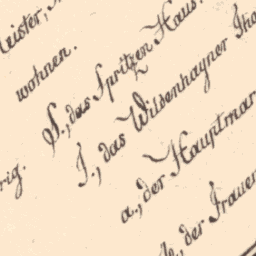 wohnen.
S., das Spritzen Haus.
T., das Wilsenhayner Tho
a., der Hauptmar
der Frauen